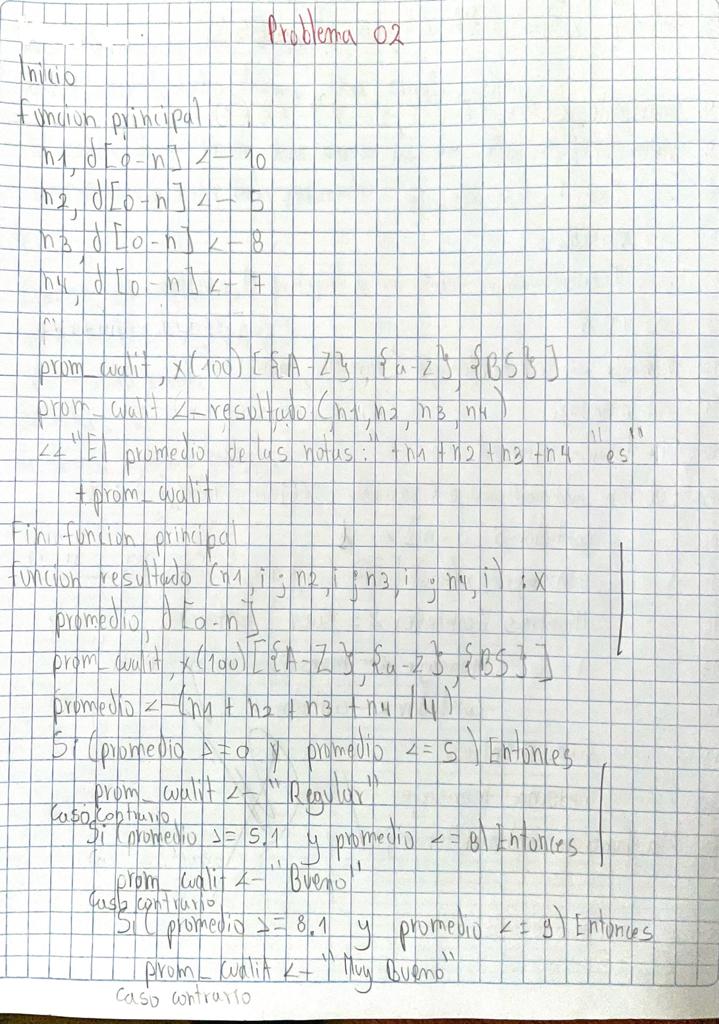 Problema 02
Inicio
funcion principal
n1, d[0-n] <- 10
n2, d[0-n] <- 5
n3, d[0-n] <- 8
n4, d[0-n] <- 7
prom_cualit, x(100)[{A-Z}, {a-z}, {BS}]
prom_cualit <- resultado (n1, n2, n3, n4)
<< "El promedio de las notas:" +n1 +n2 +n3 +n4 "es"
+ prom_cualit
Fin funcion principal
funcion resultado (n1, i ; n2, i ; n3, i ; n4, i) : x
promedio, d[0-n]
prom_cualit, x(100)[{A-Z}, {a-z}, {BS}]
promedio <- (n1 + n2 + n3 + n4 / 4)
Si (promedio >= 0 y promedio <= 5) Entonces
prom_cualit <- "Regular"
Caso contrario
Si (promedio >= 5.1 y promedio <= 8) Entonces
prom_cualit <- "Bueno"
Caso contrario
Si (promedio >= 8.1 y promedio <= 9) Entonces
prom_cualit <- "Muy Bueno"
Caso contrario